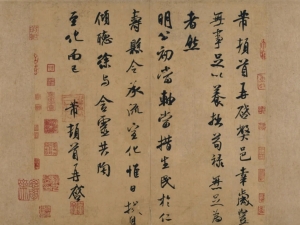 芾頓首再啓弊邑幸歲豐
無事足以養拙苟祿無足為
者然
明公初當軸當措生民於仁
壽縣令承流宣化惟日拭目
傾聽徐與含靈共陶
至化而已 芾頓首再啓